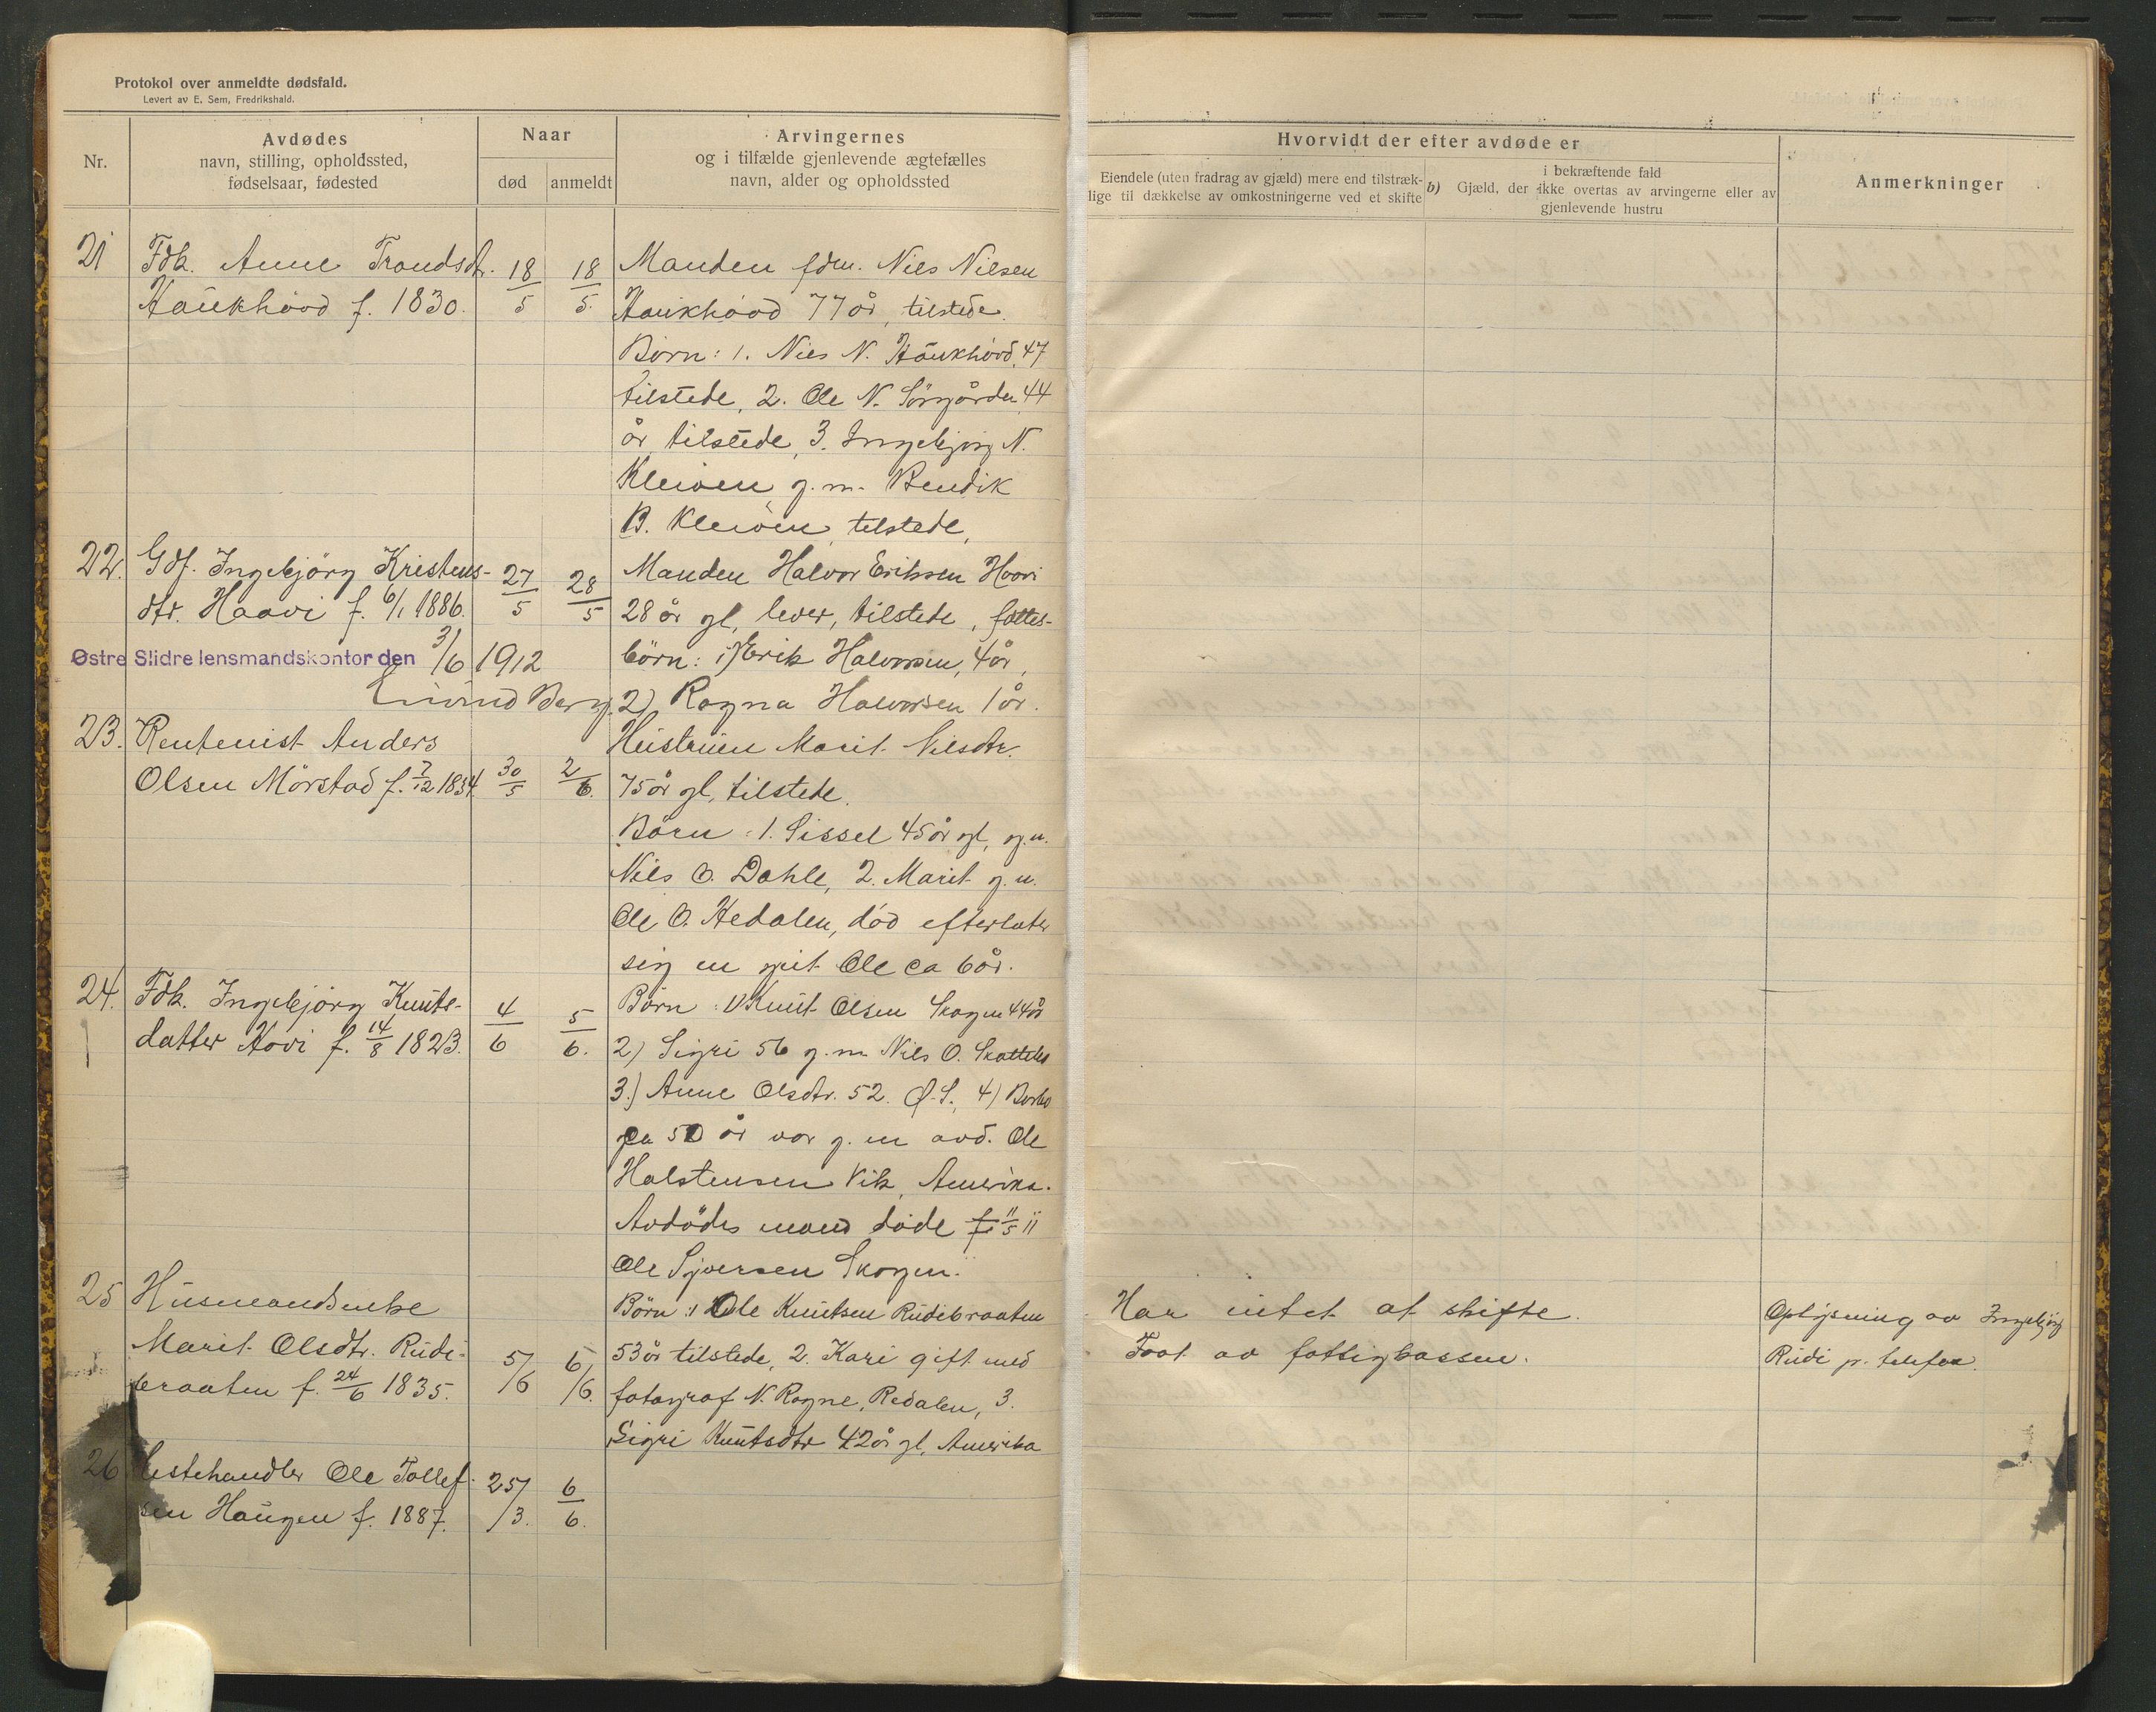 Protokol over anmeldte dødsfald.
Levert av E. Sem, Fredrikshald.
Nr.
Avdødes
navn, stilling, opholdssted,
fødselsaar, fødested
Naar
død
anmeldt
Arvingernes
og i tilfælde gjenlevende ægtefælles
navn, alder og opholdssted
Hvorvidt der efter avdøde er
Eiendele (uten fradrag av gjæld) mere end tilstræk-
lige til dækkelse av omkostningerne ved et skifte
i bekræftende fald
b) Gjæld, der ikke overtas av arvingerne eller av
gjenlevende hustru
Anmerkninger
21 Fdk. Anne Trondsdt.
Haukhovd f. 1830.
18/5
18/5.
Manden fdm. Niels Nilsen
Haukhovd 77 år, tilstede.
Børn: 1. Niels N. Haukhövd, 47
tilstede, 2. Ole N. Sörgården 44
år tilstede, 3. Ingebjörg N.
Kleiven, g.m. Bendik
B. Kleiven, tilstede,
22. Gdf. Ingebjörg Kristens-
dtr. Haavi f. 6/1 1886.
27/5
28/5
Manden Halvor Eriksen Hovi
28 år gl, lever, tilstede, fælles-
börn: 1) Erik Halvorsen, 4 år,
2) Ragna Halvorsen 1 år.
Østre Slidre lensmandskontor den 3/6 1912
Eivind Berg.
23. Rentenist Anders
Olsen Mörstad f. 7/12 1834.
30/5
2/6.
Hustruen Marit Nilsdtr.
75 år gl, tilstede.
Börn: 1. Sissel 45 år gl, g.m.
Nils O. Dahle, 2. Marit g.m.
Ole O. Hedalen, död efterlater
sig en gut Ole ca 6 år.
24. Fdk. Ingebjörg Knuts-
datter Hovi f. 14/8 1823.
4/6
5/6.
Börn: 1) Knut Olsen Skogen 44 år
2) Sigri 56 g.m. Nils O. Skattebo
3.) Anne Olsdtr. 52. Ø.S., 4) Barbo
ca 50 år var g.m avd. Ole
Halstensen Vik, Amerika.
Avdödes mand döde 11/5 11
Ole Syversen Skogen.
25 Husmandsenke
Marit Olsdtr. Rudi-
braaten f. 24/6 1835.
5/6
6/6.
Börn: 1 Ole Knutsen Rudibraaten
53 år tilstede, 2. Kari gift med
fotograf N. Rogne, Redalen, 3.
Sigri Knutsdtr 42 år gl, Amerika
Har intet at skifte.
Trat av fattigkassen.
Oplysning av Ingebjörg
Rudi p. telefon.
26 Hestehandler Ole Tollef-
sen Haugen f. 1887.
25/3.
6/6.